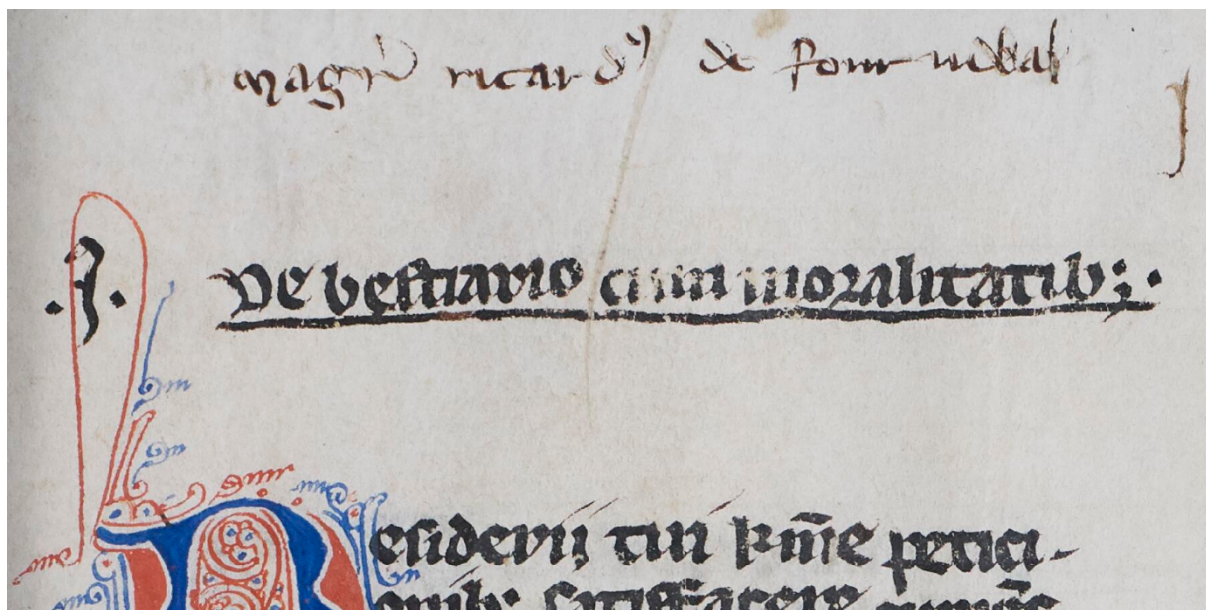 magr̄ ricardꝰ de fournival
.J. De bestiario cum moralitatib;.
Desiderij tui km̄e petici-
onib; satisfacere